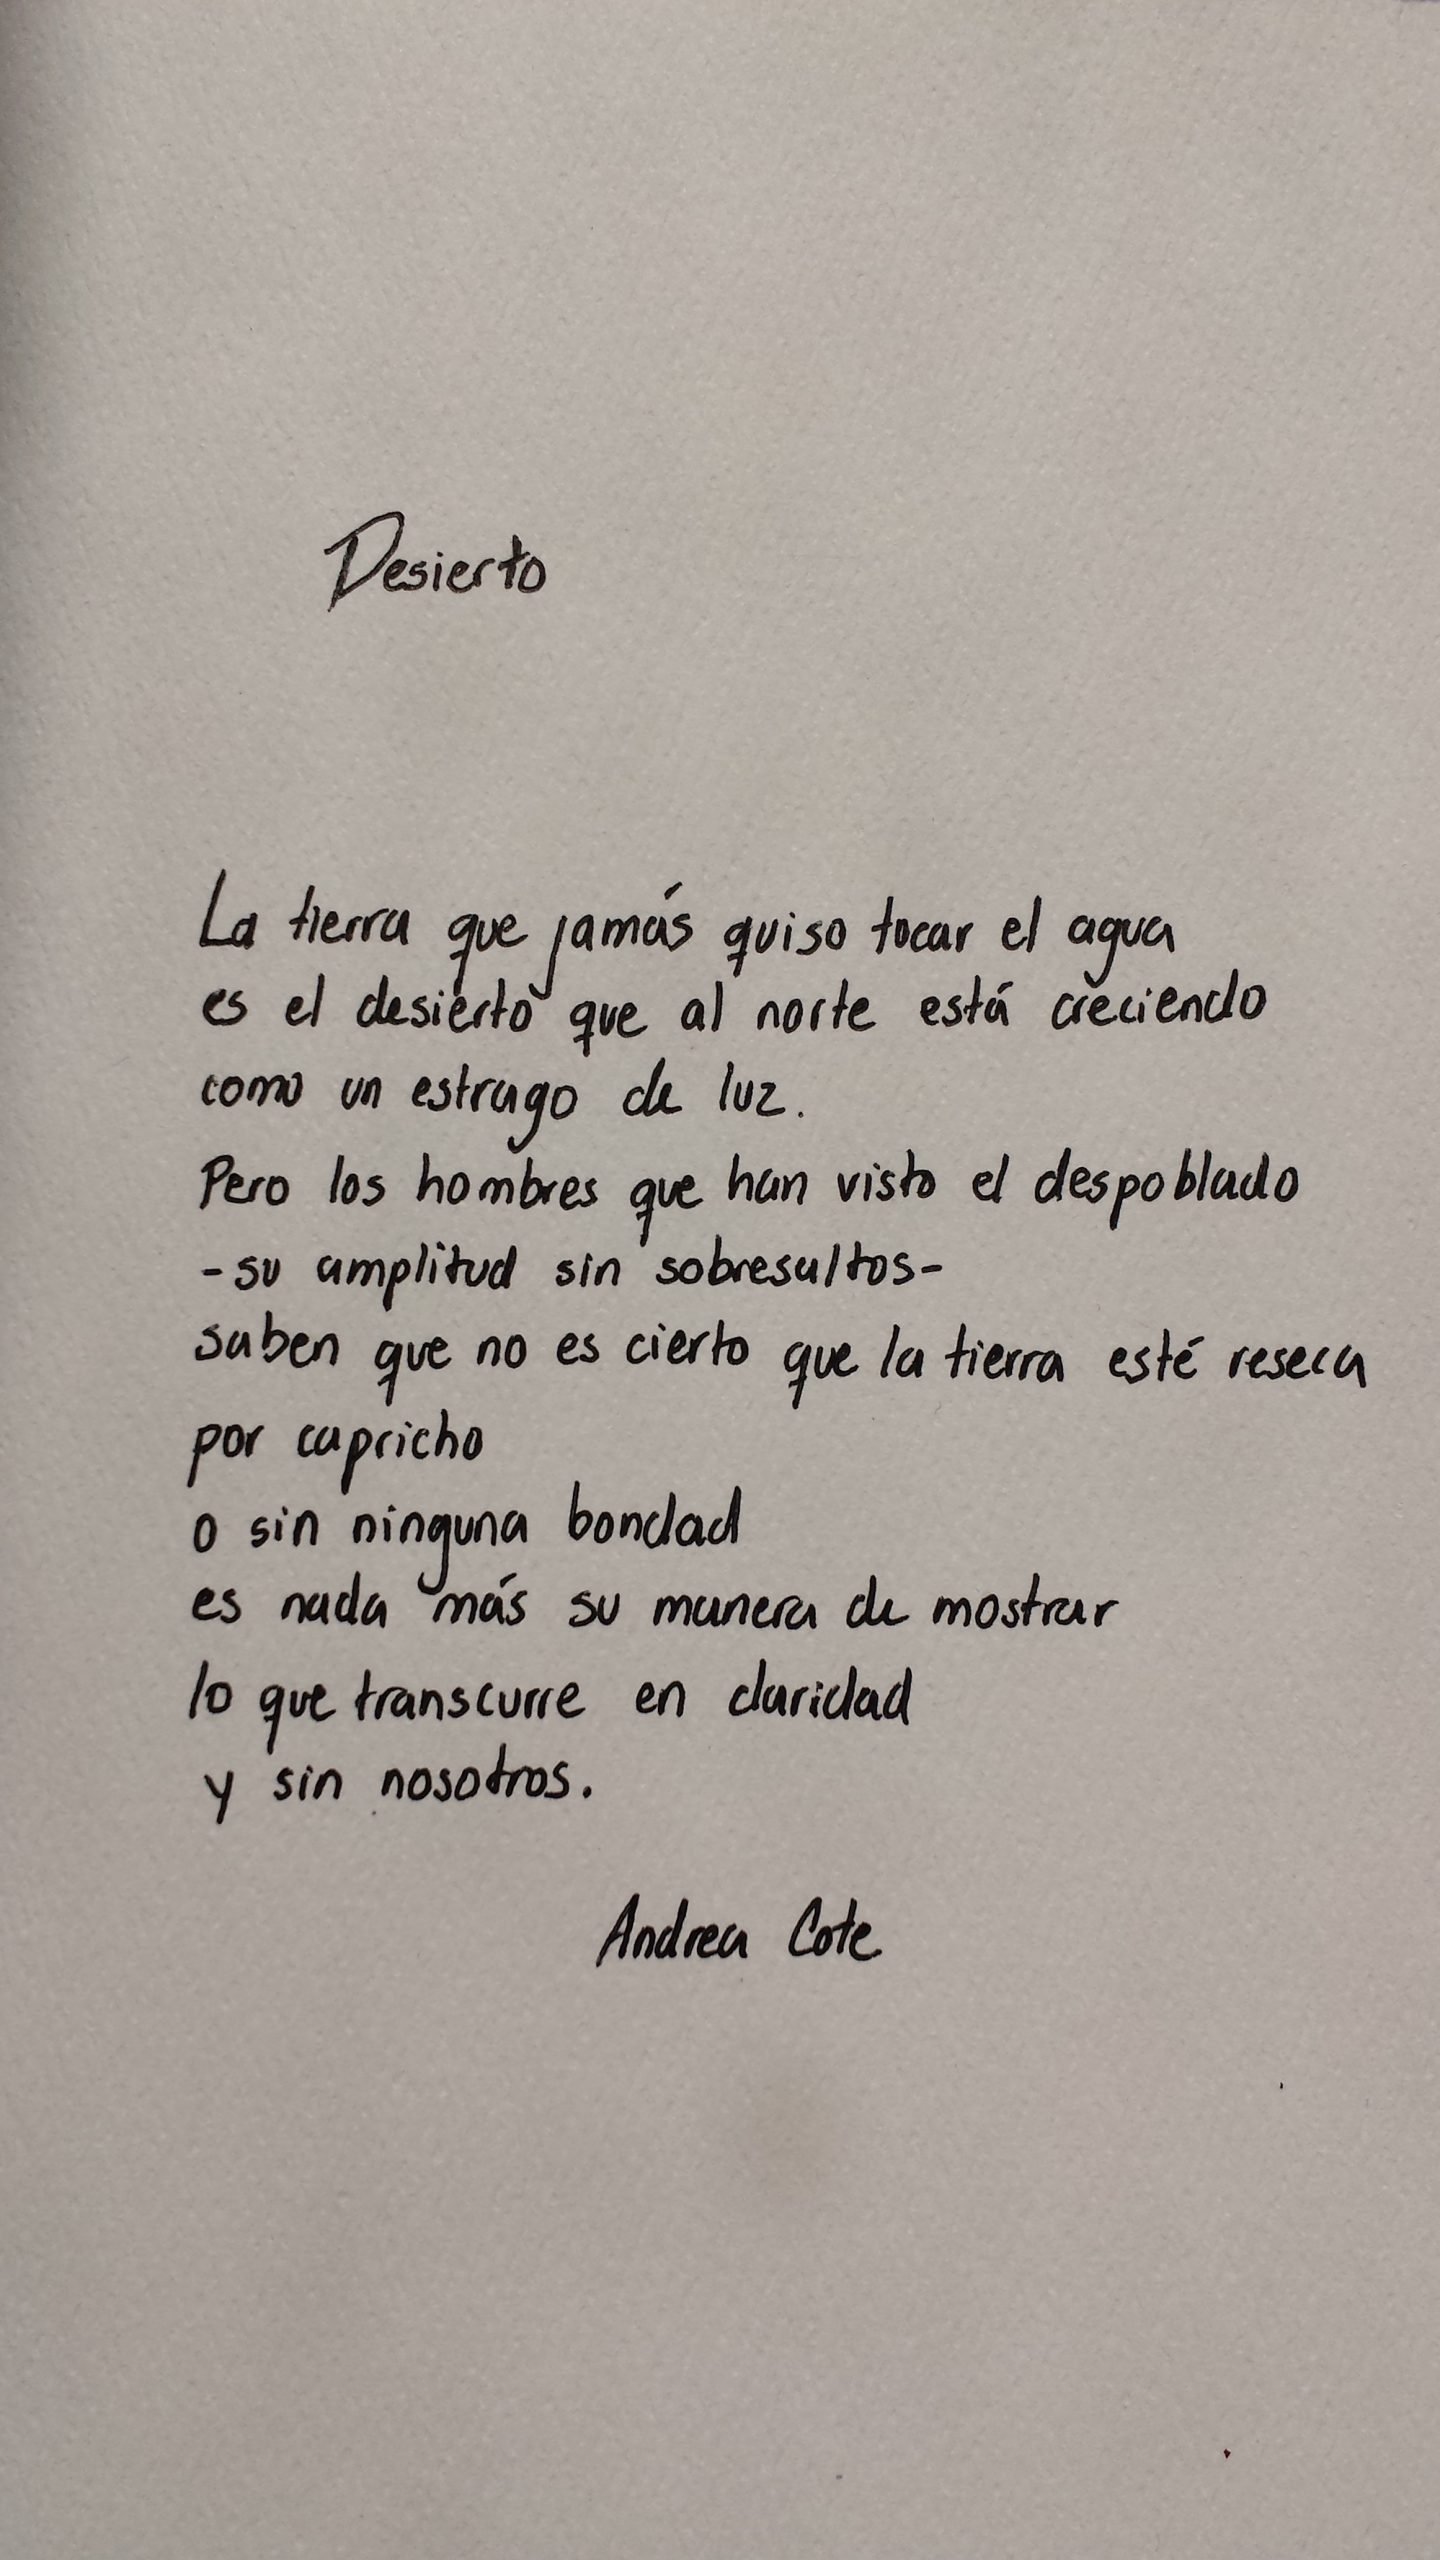 Desierto
La tierra que jamás quiso tocar el agua
es el desierto que al norte está creciendo
como un estrago de luz.
Pero los hombres que han visto el despoblado
-su amplitud sin sobresaltos-
saben que no es cierto que la tierra esté reseca
por capricho
o sin ninguna bondad
es nada más su manera de mostrar
lo que transcurre en claridad
y sin nosotros.
Andrea Cote